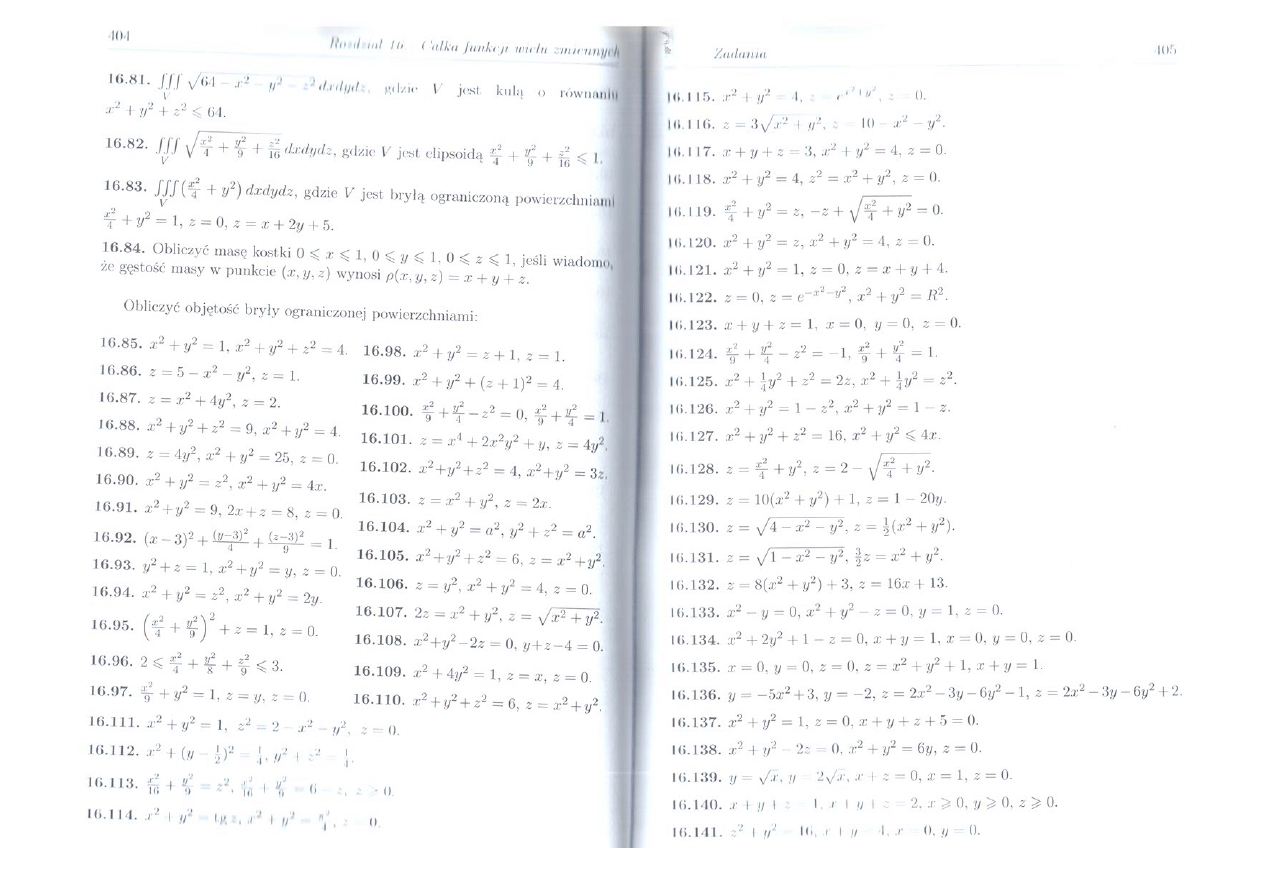 404
Rozdział 16. Całka funkcji wielu zmiennych
16.81. ∭ √(64 − x² − y² − z²) dxdydz, gdzie V jest kulą o równaniu
V
x² + y² + z² ⩽ 64.
16.82. ∭ √(x²/4 + y²/9 + z²/16) dxdydz, gdzie V jest elipsoidą x²/4 + y²/9 + z²/16 ⩽ 1.
V
16.83. ∭(x²/4 + y²) dxdydz, gdzie V jest bryłą ograniczoną powierzchniami
V
x²/4 + y² = 1, z = 0, z = x + 2y + 5.
16.84. Obliczyć masę kostki 0 ⩽ x ⩽ 1, 0 ⩽ y ⩽ 1, 0 ⩽ z ⩽ 1, jeśli wiadomo,
że gęstość masy w punkcie (x, y, z) wynosi ρ(x, y, z) = x + y + z.
Obliczyć objętość bryły ograniczonej powierzchniami:
16.85. x² + y² = 1, x² + y² + z² = 4.
16.86. z = 5 − x² − y², z = 1.
16.87. z = x² + 4y², z = 2.
16.88. x² + y² + z² = 9, x² + y² = 4.
16.89. z = 4y², x² + y² = 25, z = 0.
16.90. x² + y² = z², x² + y² = 4x.
16.91. x² + y² = 9, 2x + z = 8, z = 0.
16.92. (x − 3)² + (y−3)²/4 + (z−3)²/9 = 1.
16.93. y² + z = 1, x² + y² = y, z = 0.
16.94. x² + y² = z², x² + y² = 2y.
16.95. (x²/4 + y²/9)² + z = 1, z = 0.
16.96. 2 ⩽ x²/4 + y²/8 + z²/9 ⩽ 3.
16.97. x²/9 + y² = 1, z = y, z = 0.
16.98. x² + y² = z + 1, z = 1.
16.99. x² + y² + (z + 1)² = 4.
16.100. x²/9 + y²/4 − z² = 0, x²/9 + y²/4 = 1.
16.101. z = x⁴ + 2x²y² + y, z = 4y².
16.102. x² + y² + z² = 4, x² + y² = 3z.
16.103. z = x² + y², z = 2x.
16.104. x² + y² = a², y² + z² = a².
16.105. x² + y² + z² = 6, z = x² + y².
16.106. z = y², x² + y² = 4, z = 0.
16.107. 2z = x² + y², z = √(x² + y²).
16.108. x² + y² − 2z = 0, y + z − 4 = 0.
16.109. x² + 4y² = 1, z = x, z = 0.
16.110. x² + y² + z² = 6, z = x² + y².
16.111. x² + y² = 1, z² = 2 − x² − y², z = 0.
16.112. x² + (y − 1/2)² = 1/4, y² + z² = 1/4.
16.113. x²/16 + y²/9 = z², x²/16 + y²/9 = 6 − z, z > 0.
16.114. x² + y² = tg z, x² + y² = , z = 0.
Zadania
405
16.115. x² + y² = 4, z = e^(x²+y²), z = 0.
16.116. z = 3√(x² + y²), z = 10 − x² − y².
16.117. x + y + z = 3, x² + y² = 4, z = 0.
16.118. x² + y² = 4, z² = x² + y², z = 0.
16.119. x²/4 + y² = z, −z + √(x²/4 + y²) = 0.
16.120. x² + y² = z, x² + y² = 4, z = 0.
16.121. x² + y² = 1, z = 0, z = x + y + 4.
16.122. z = 0, z = e^(−x²−y²), x² + y² = R².
16.123. x + y + z = 1, x = 0, y = 0, z = 0.
16.124. x²/9 + y²/4 − z² = −1, x²/9 + y²/4 = 1.
16.125. x² + ¼y² + z² = 2z, x² + ¼y² = z².
16.126. x² + y² = 1 − z², x² + y² = 1 − z.
16.127. x² + y² + z² = 16, x² + y² ⩽ 4x.
16.128. z = x²/4 + y², z = 2 − √(x²/4 + y²).
16.129. z = 10(x² + y²) + 1, z = 1 − 20y.
16.130. z = √(4 − x² − y²), z = ½(x² + y²).
16.131. z = √(1 − x² − y²), 3/2z = x² + y².
16.132. z = 8(x² + y²) + 3, z = 16x + 13.
16.133. x² − y = 0, x² + y² − z = 0, y = 1, z = 0.
16.134. x² + 2y² + 1 − z = 0, x + y = 1, x = 0, y = 0, z = 0.
16.135. x = 0, y = 0, z = 0, z = x² + y² + 1, x + y = 1.
16.136. y = −5x² + 3, y = −2, z = 2x² − 3y − 6y² − 1, z = 2x² − 3y − 6y² + 2.
16.137. x² + y² = 1, z = 0, x + y + z + 5 = 0.
16.138. x² + y² − 2z = 0, x² + y² = 6y, z = 0.
16.139. y = √x, y = 2√x, x + z = 0, x = 1, z = 0.
16.140. x + y + z = 1, x + y + z = 2, x ⩾ 0, y ⩾ 0, z ⩾ 0.
16.141. z² + y² = 16, x + y = 4, x = 0, y = 0.